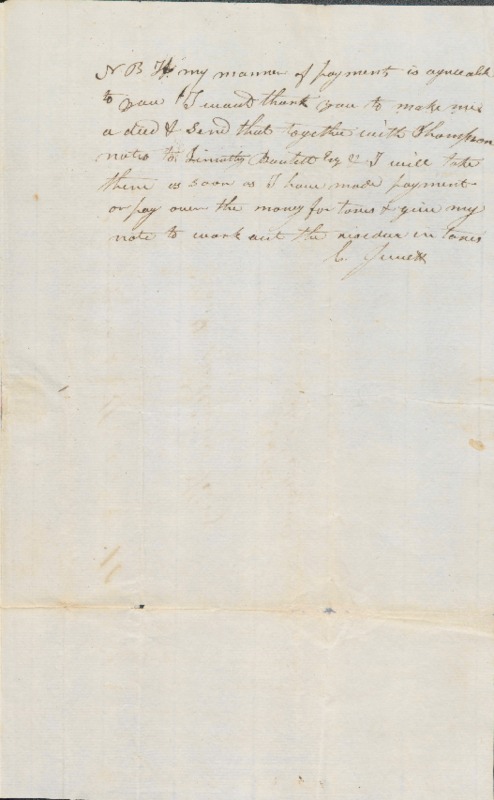 N B If my manner of payment is agreeable
to you I want thank you to make me
a deed & send that together with Thompson
notes to Timothy Boutell Esq & I will take
them as soon as I have made payment
or pay over the money for taxes & give my
note to work out the residue in taxes
C. Jewett